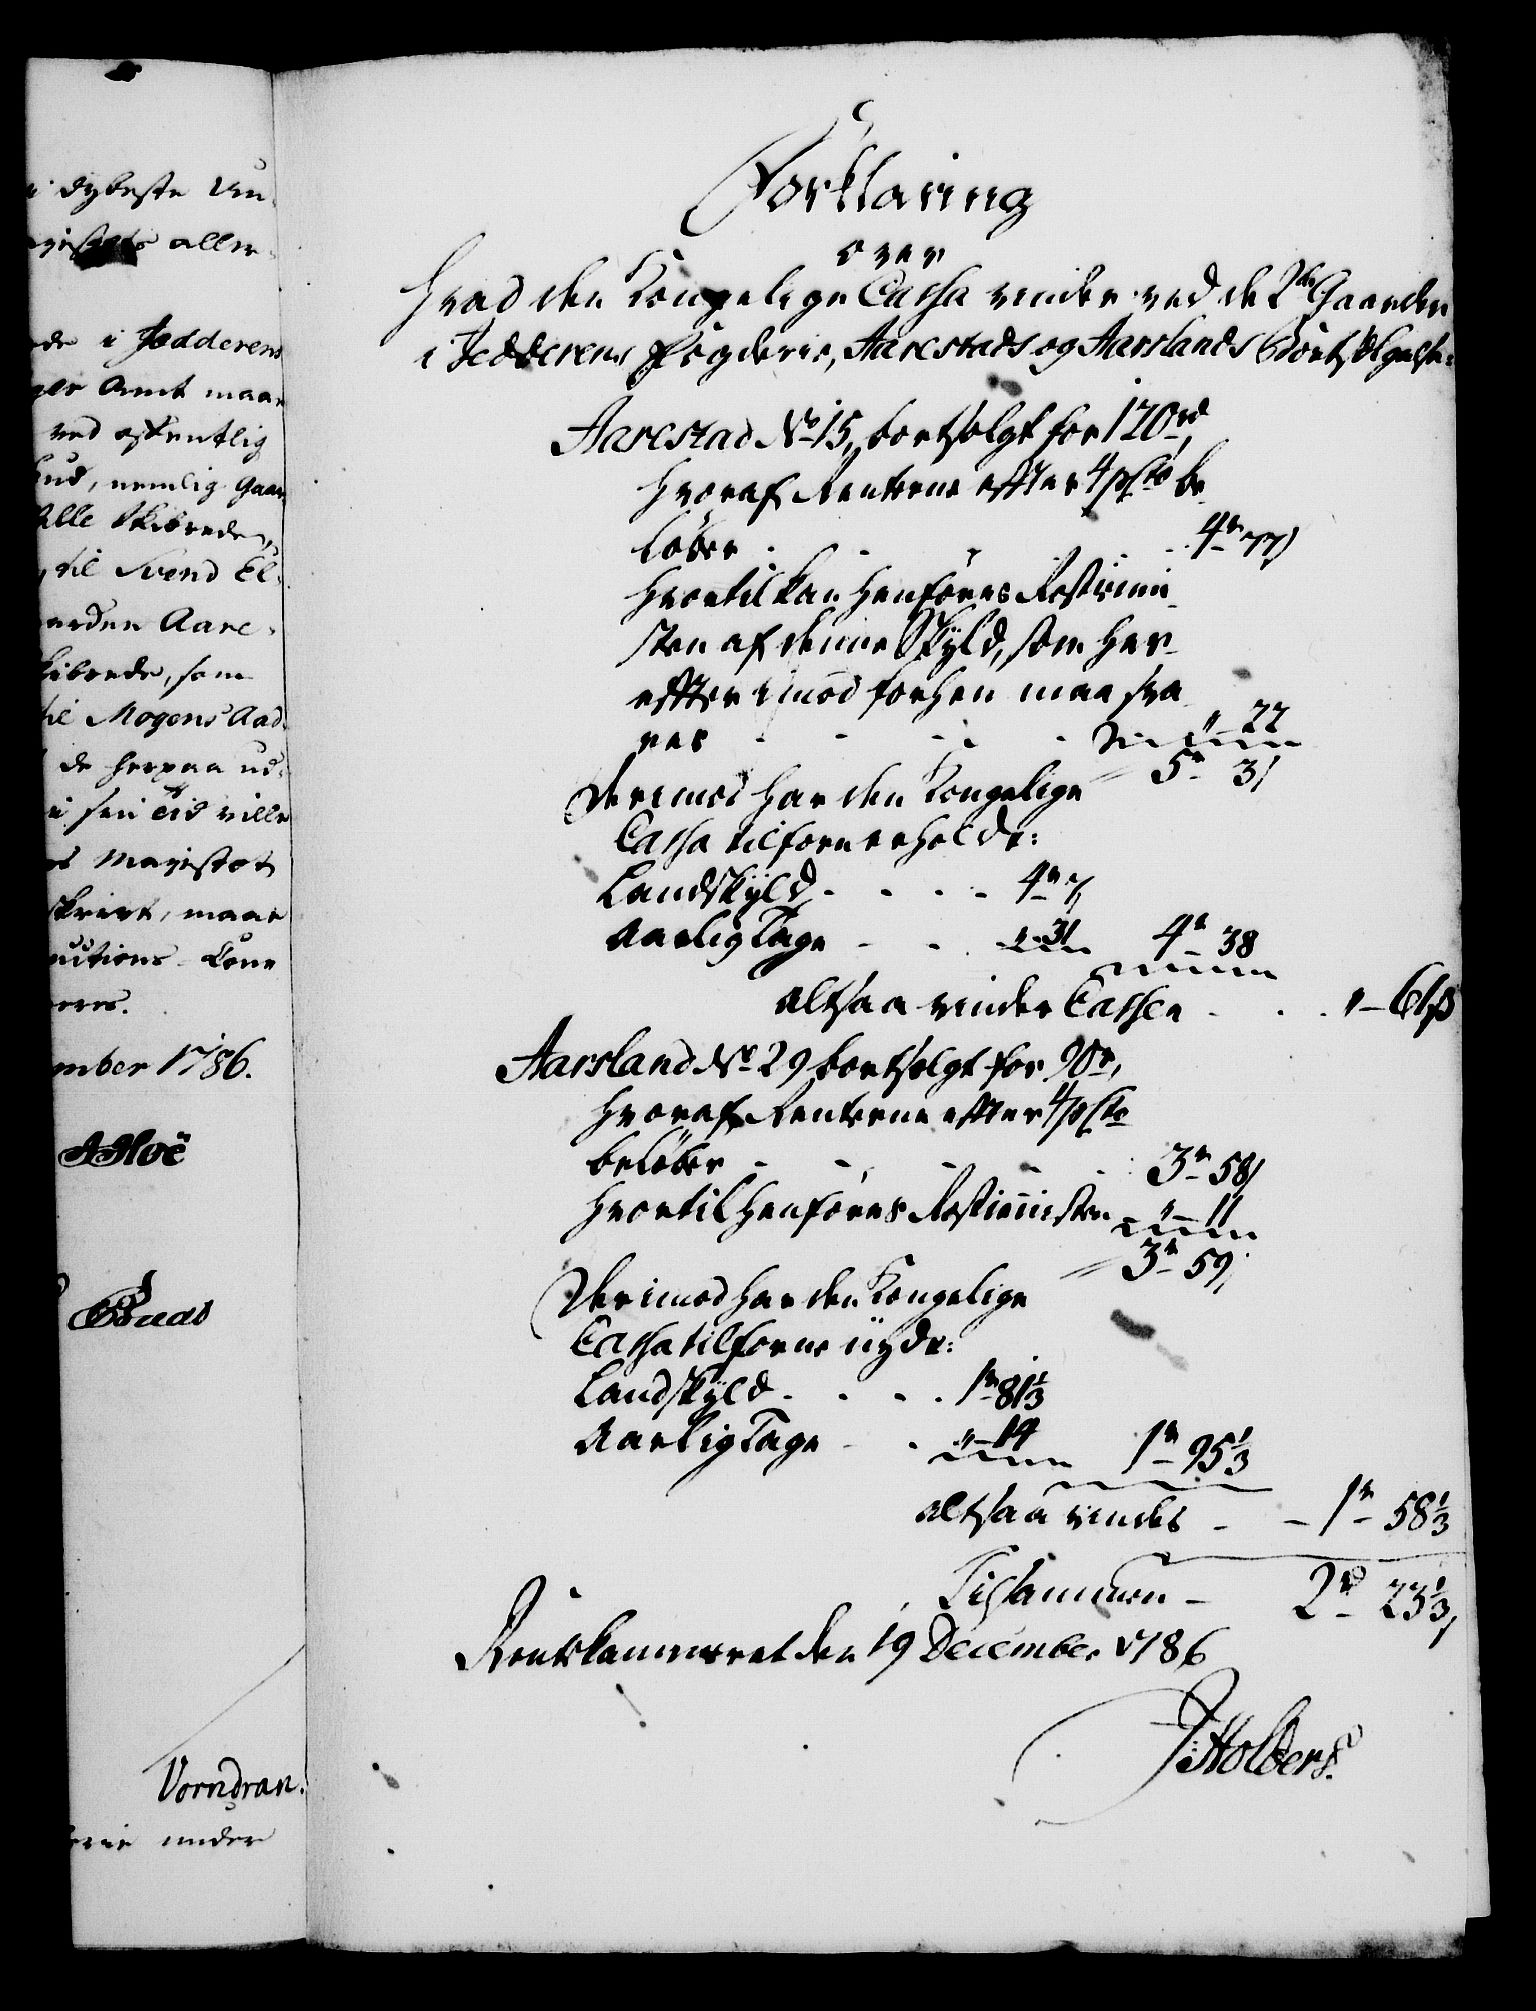 i dybeste Un-
aller-
i Jedderens
Amt maae
ved offentlig
bud, nemlig Gaar-
Skibrede,
til Svend El-
aarden Aare-
kibrede, som
til Mogens Aad-
de herpaa ud-
i sin Tid ville
Mayestæt
skrivt, maae
ember 1786.
AHoë
Vorndran.
under
Forklaring
over
hvad den Kongelige Cassa vinder ved de 2de Gaarder
i Jedderens Fogderie, Aarestads og Aarslands Bortsælgelse:
Aarestad No 15, bortsolgt for 120rd,
hvoraf Renterne efter 4 pCto be-
løber . . . . 4r 77s
hvortil kan henføres Rosstieni-
sten af denne Skyld, som her-
efter imod forhen maa sva-
res . . . . " 22
5r 3s
Derimod har den Kongelige
Cassa tilforn erholdt:
Landskyld . . . . 4r 7s
Aarlig Tage . . " 31 4r 38
altsaa vinder Cassen . . . " 61s
Aarsland No 29 bortsolgt for 90r,
hvoraf Renterne efter 4 pCto
beløber . . . . . 3r 58s
hvortil henføres Rostienisten " 11
3r 59s
Derimod har den Kongelige
Cassa tilforne nydt:
Landskyld . . . . 1r 81⅓
Aarlig Tage . . " 14 1r 95⅓
altsaa vindes . . 1r 58⅓
Tilsammen – 2rd 23⅓s
Rentekammeret den 19 December 1786